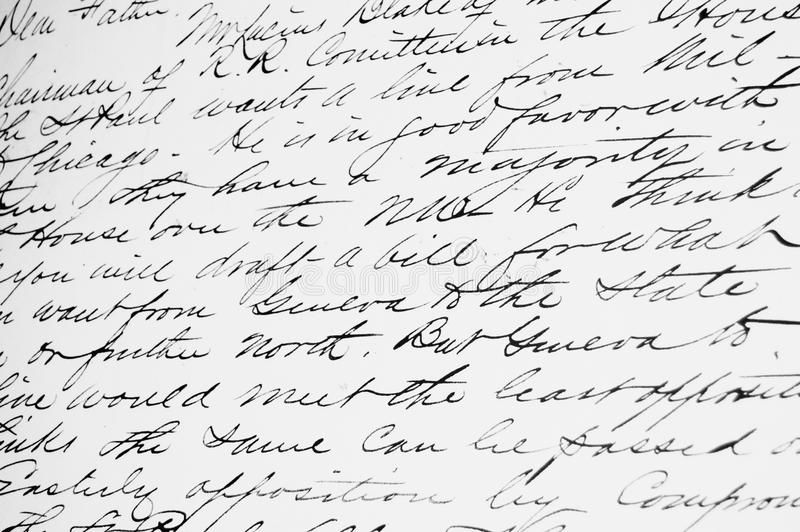 Dear Father. Mr Lucius Blake of
Chairman of R.R. Committee in the House
the St Paul wants a line from Mil-
Chicago - He is in good favor with
They have a majority in
House over the He think
you will draft a bill for what
want from Geneva to the State
or further north. But Geneva to
line would meet the least oppositi
inks the same can be passed o
Easterly opposition by Comprom
the